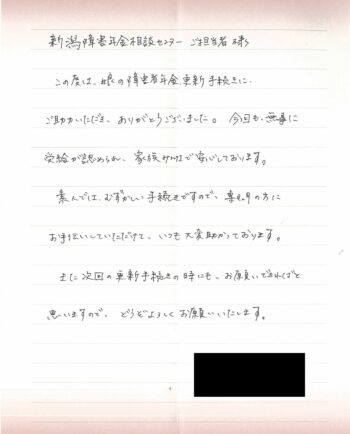 新潟障害年金相談センター ご担当者様
この度は、娘の障害者年金更新手続きに、
ご助力いただき、ありがとうございました。今回も、無事に
受給が認められ、家族みんなで安心しております。
素人では、むずかしい手続きですので、専門の方に
お手伝いしていただけて、いつも大変助かっております。
また次回の更新手続きの時にも、お願いできればと
思いますので、どうぞよろしくお願いいたします。